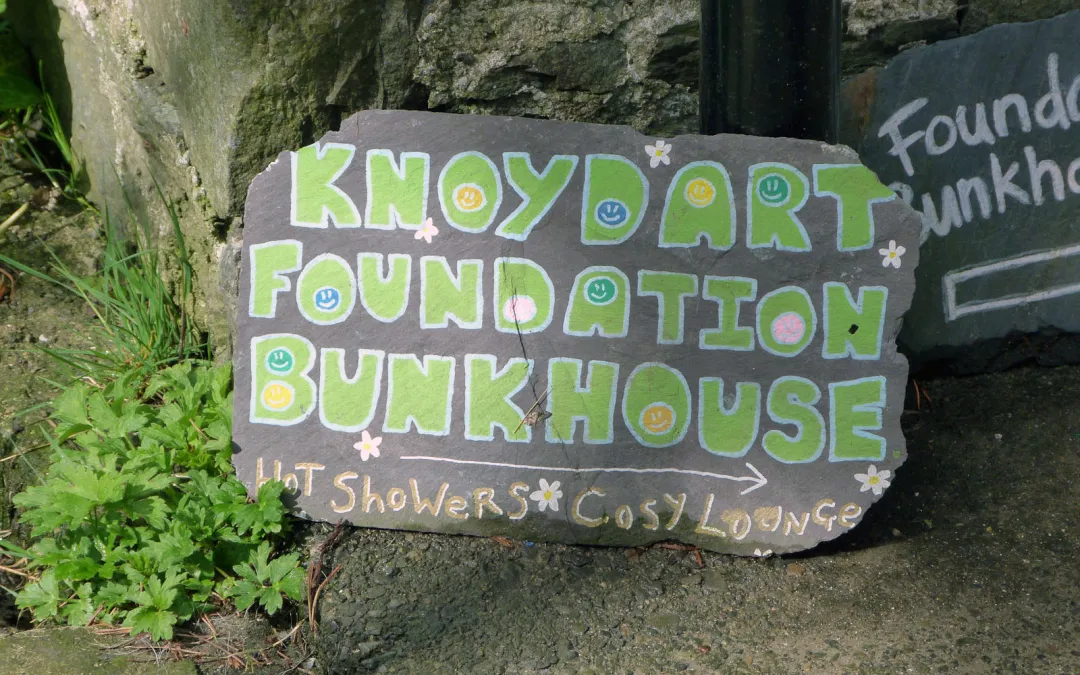 KNOYDART
FOUNDATION
BUNKHOUSE
HOT SHOWERS COSY LOUNGE
Founda
Bunkho